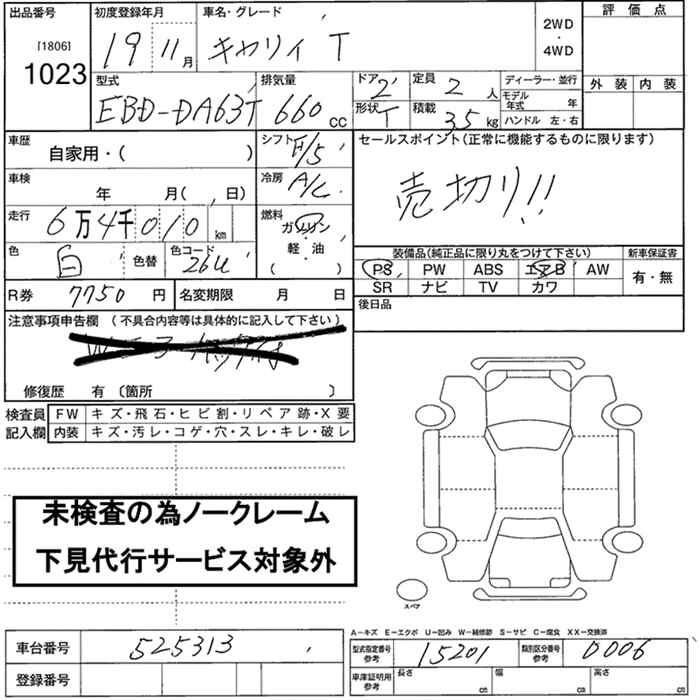 出品番号 初度登録年月 車名・グレード 評価点
[1806] 19 11月 キャリイ T 2WD・4WD
1023
外装 内装
型式 排気量 ドア 2 定員 2人 ディーラー・並行
EBD-DA63T 660cc 形状 T 積載 35kg モデル年式 年
ハンドル 左・右
車歴 自家用・( ) シフト F/5 セールスポイント(正常に機能するものに限ります)
車検 年 月( 日) 冷房 A/C 売切り!!
走行 6万4千010km 燃料 ガソリン・軽・油 ( )
色 白 色替 色コード 26U 装備品(純正品に限り丸をつけて下さい) 新車保証書
PS PW ABS エアB AW 有・無
SR ナビ TV カワ
R券 7750円 名変期限 月 日 後日品
注意事項申告欄 (不具合内容等は具体的に記入して下さい)
修復歴 有 〔箇所 〕
検査員 FW キズ・飛石・ヒビ割・リペア跡・X要
記入欄 内装 キズ・汚レ・コゲ・穴・スレ・キレ・破レ
未検査の為ノークレーム
下見代行サービス対象外
スペア
A-キズ E-エクボ U-凹み W-補修跡 S-サビ C-腐食 XX-交換済
車台番号 525313 型式指定番号 参考 15201 類別区分番号 参考 0006
登録番号 車庫証明用 参考 長さ cm 幅 cm 高さ cm